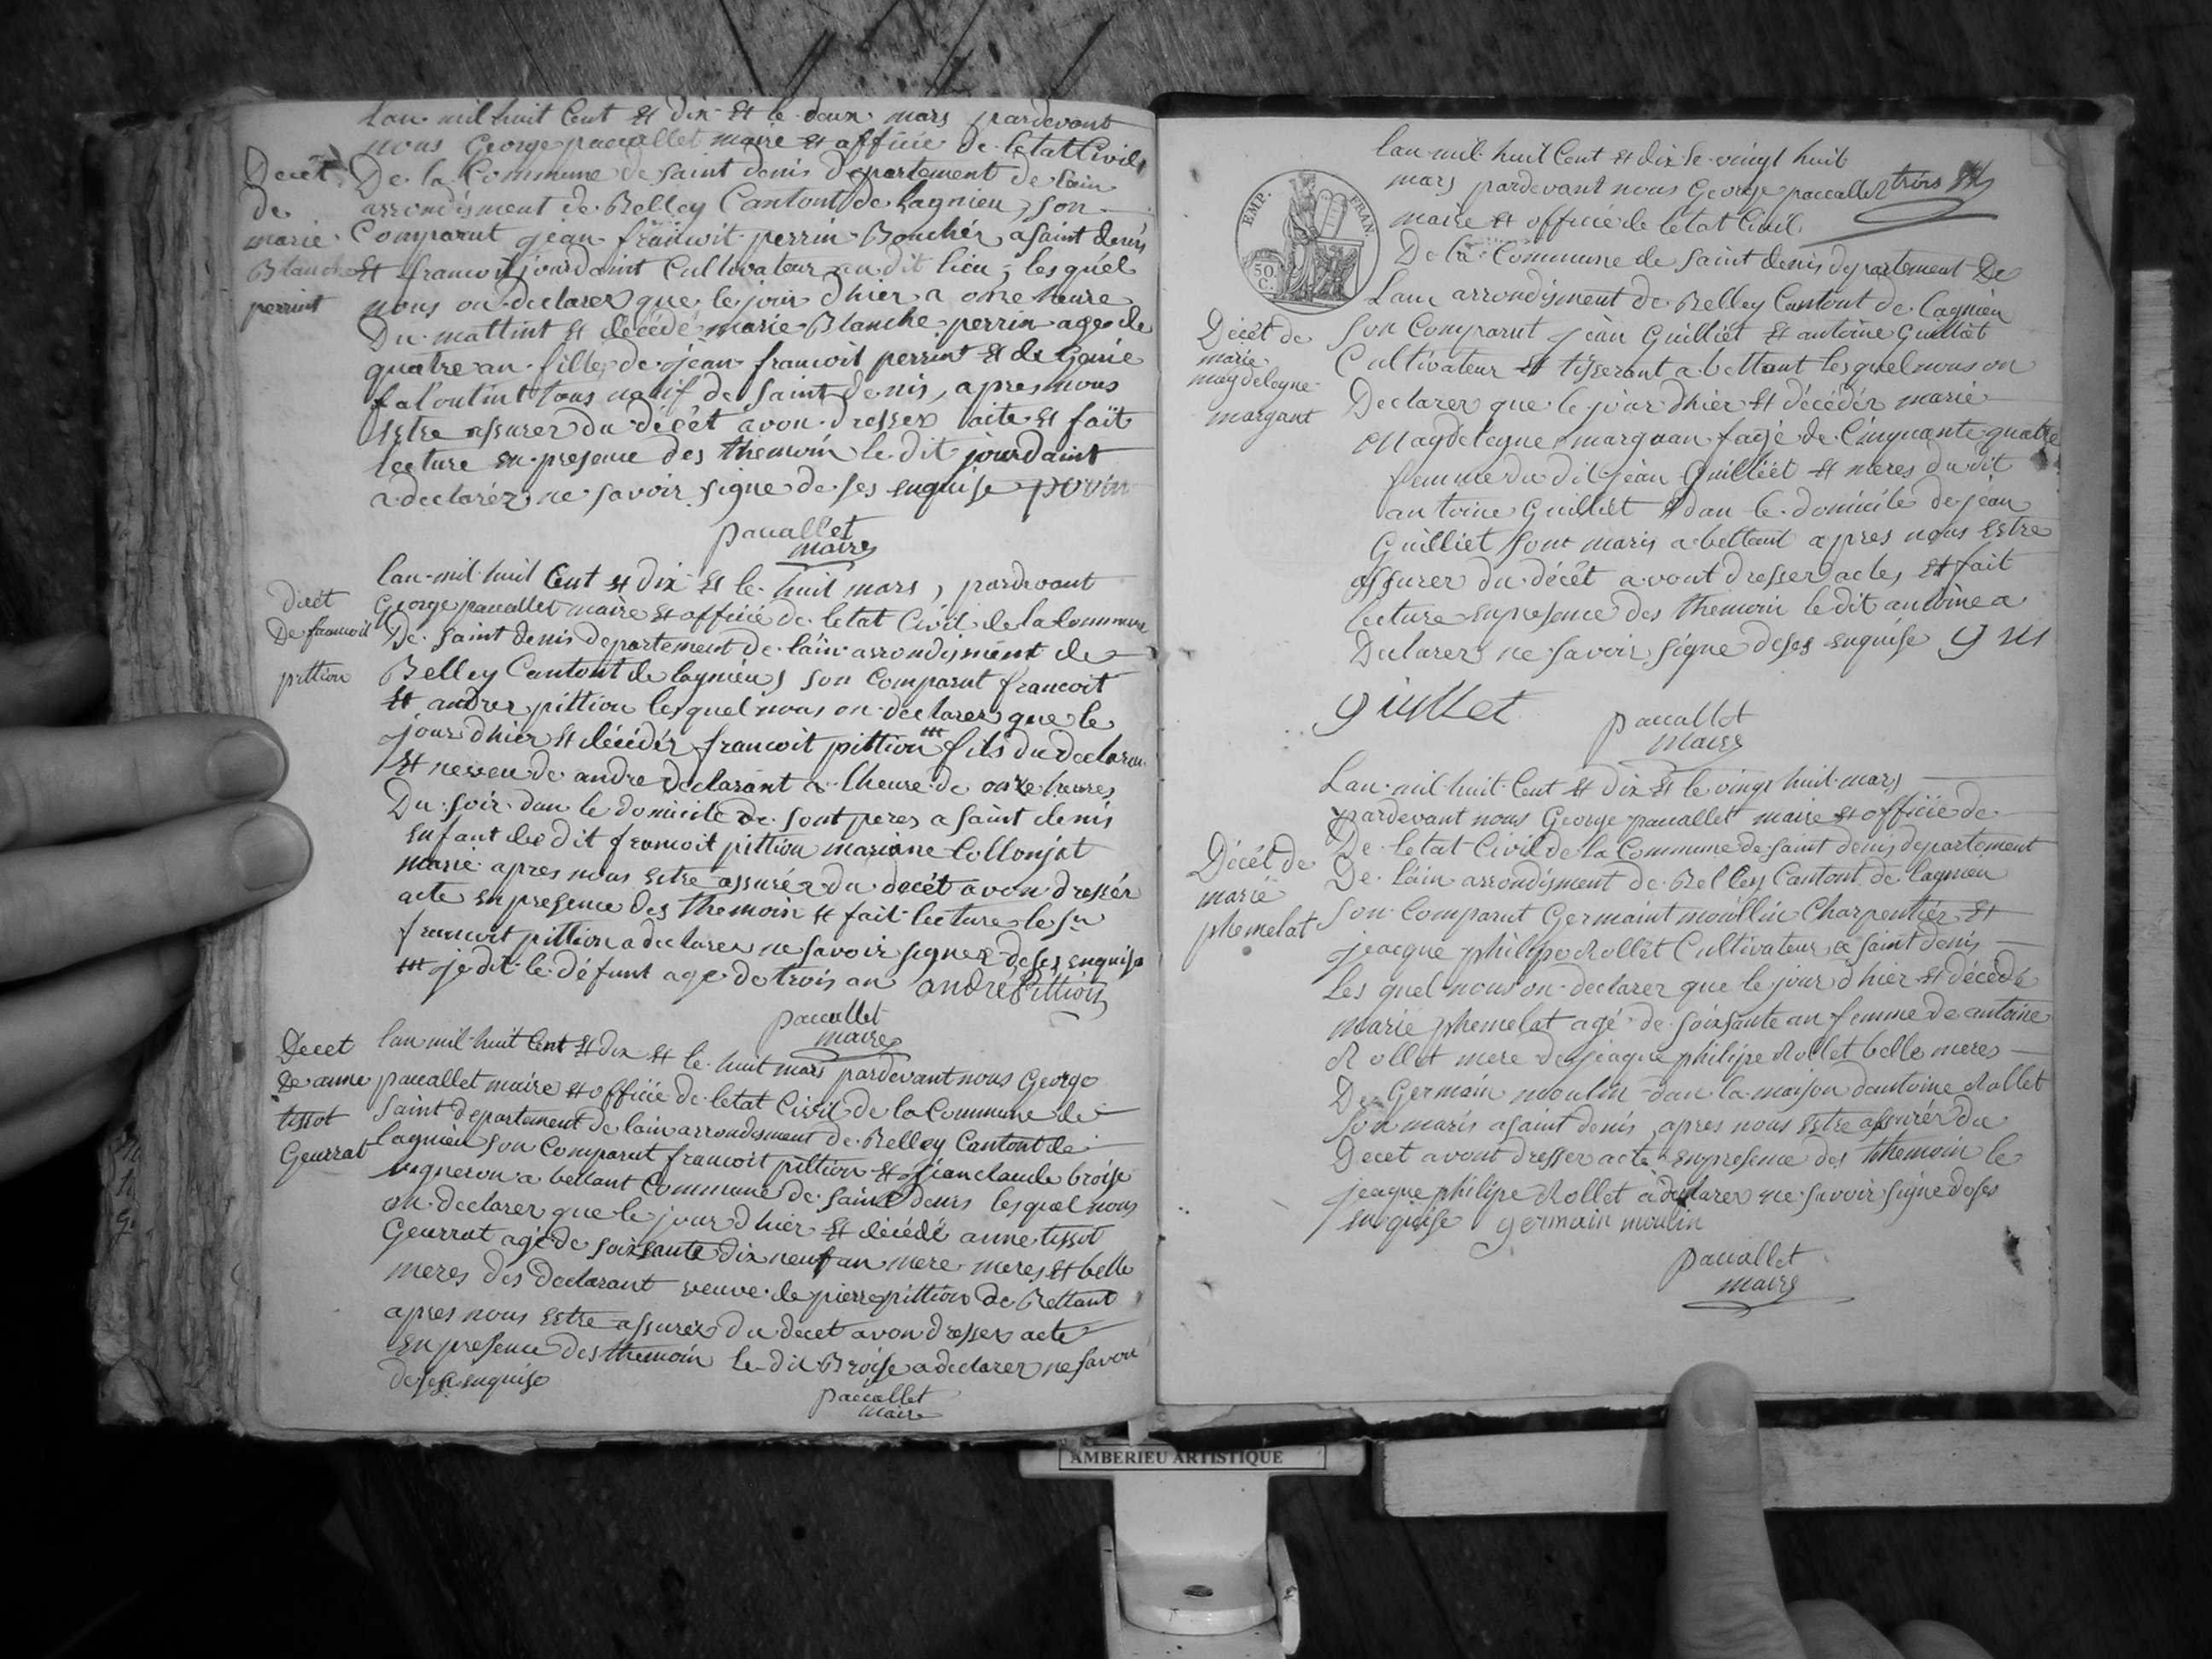 Lan mil huit Cent et dix et le deux mars pardevant
nous George pauallet maire et officié de letat Civil
Decet De la Commune de saint denis departement de lain
de arrondisment de Belley Cantont de lagnieu, son
marie Comparut jean francoit perrin Bouchér a saint denis
Blanche et francoit jourdaint Cultivateur au dit lieu, lesquel
perrint nous on declarer que le jour dhier a onze heure
Du mattint et décédé marie Blanche perrin agé de
quatre an fille de jean francoit perrint et de
tous natif de saint denis, apres nous
Estre assurer du décèt avon dresser acte et fait
lecture en presence des themoin le dit jourdaint
a declarér ne savoir signe de ses enquise perrin
pauallet
maire
lan mil huit Cent et dix et le huit mars, pardevant
Decèt George pauallet maire et officié de letat Civil de la Commune
De francoit De saint denis departement de lain arrondisment de
pittion Belley Cantont de lagnieu, son Comparut francoit
et andrer pittion lesquel nous on declarer que le
jour dhier et décédér francoit pittion ttt fils du declaran
et neveu de andre declarant a lheure de onze heures
Du soir dan le domicile de sont peres a saint denis
enfant du dit francoit pittion mariane Collonjat
marié apres nous estre assurér du decèt avon dressér
acte en presence des themoin et fait lecture le sr
francoit pittion a declarer ne savoir signer de ses enquise
ttt je dit le défunt age de trois an andré Pittion
pauallet
maire
Decet lan mil huit Cent et dix et le huit mars pardevant nous George
De anne pauallet maire et officié de letat Civil de la Commune de
tissot saint departement de lain arrondisment de Belley Cantont de
Geurrat Lagnieu son Comparut francoit pittion et jean claude broise
vigneron a bettant Commune de saint denis lesquel nous
on declarer que le jour dhier et décédé anne tissot
Geurrat agé de soixante dix neuf an mere meres et belle
meres des declarant veuve de pierre pittion de Bettant
apres nous estre assurer du decet avon dresser acte
en presence des themoin le dit Broise a declarer ne savoir
de ses enquise
pauallet
maire
lan mil huit Cent et dix le vingt huit
mars pardevant nous George pauallet trois
maire et officié de letat Civil
EMP. FRAN.
50.
C.
De la Commune de saint denis departement De
Lain arrondisment de Belley Cantont de Lagnieu
Décèt de son Comparut jean Guilliet et antoine Guilliet
marie Cultivateur et tisserant a bettant lesquel nous on
magdeleyne Declarer que le jour dhier et décédér marie
margant Magdeleyne marguan fagé de Cinquante quatre
femme du dit jean Guilliét et meres du dit
antoine Guilliet dan le domicile de jean
Guilliet sont maris a bettant apres nous Estre
assurer du décèt avont dresser actes et fait
lecture en presence des themoin le dit antoine a
Declarer ne savoir signe de ses enquise g
guillet
pauallet
maire
Lan mil huit Cent et dix et le vingt huit mars
pardevant nous George pauallet maire et officié de
Décèt de De letat Civil de la Commune de saint denis departement
marié De Lain arrondisment de Belley Cantont de lagnieu
phemelat son Comparut Germaint moullin Charpentiér et
jeacque philipe Rollèt Cultivateur a saint denis
Les quel nous on declarer que le jour dhier et décédé
marie phemelat agé de soixsante an femme de antoine
Rollet mere de jeaque philipe Rollet belle meres
De Germain moulin dan la maison dantoine Rollet
son maris a saint denis, apres nous Estre assurér du
Decet avont dresser acte en presence des themoin le
jeaque philipe Rollet a declarer ne savoir signe de ses
enquise germain moulin
pauallet
maire
AMBERIEU ARTISTIQUE